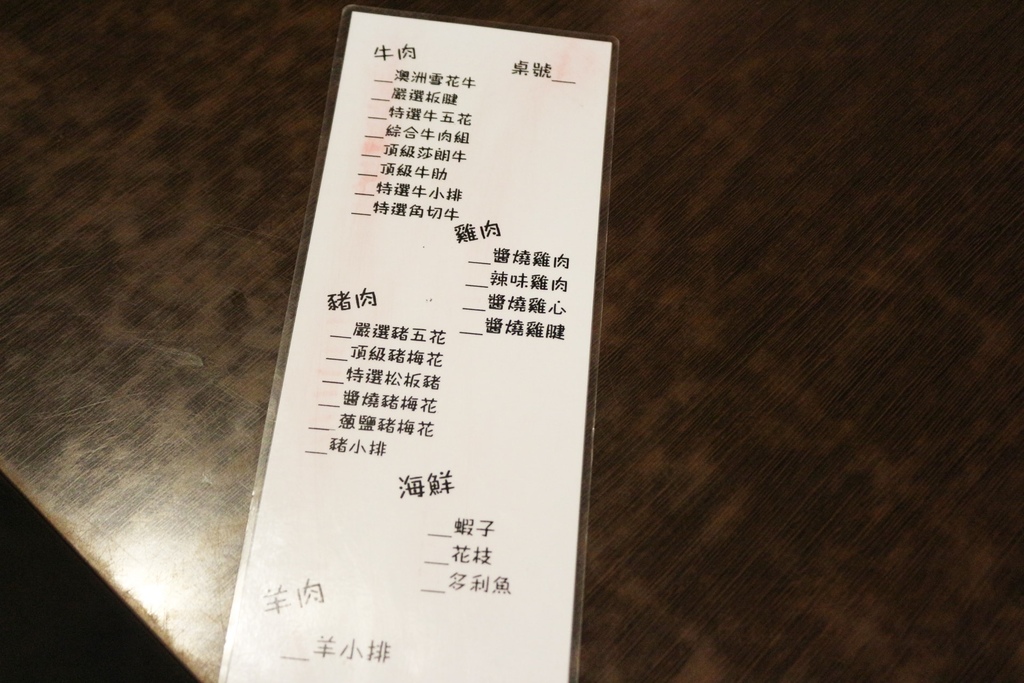 牛肉
桌號__
__澳洲雪花牛
__嚴選板腱
__特選牛五花
__綜合牛肉組
__頂級莎朗牛
__頂級牛肋
__特選牛小排
__特選角切牛
雞肉
__醬燒雞肉
__辣味雞肉
__醬燒雞心
__醬燒雞腱
豬肉
__嚴選豬五花
__頂級豬梅花
__特選松板豬
__醬燒豬梅花
__蔥鹽豬梅花
__豬小排
海鮮
__蝦子
__花枝
__多利魚
羊肉
__羊小排